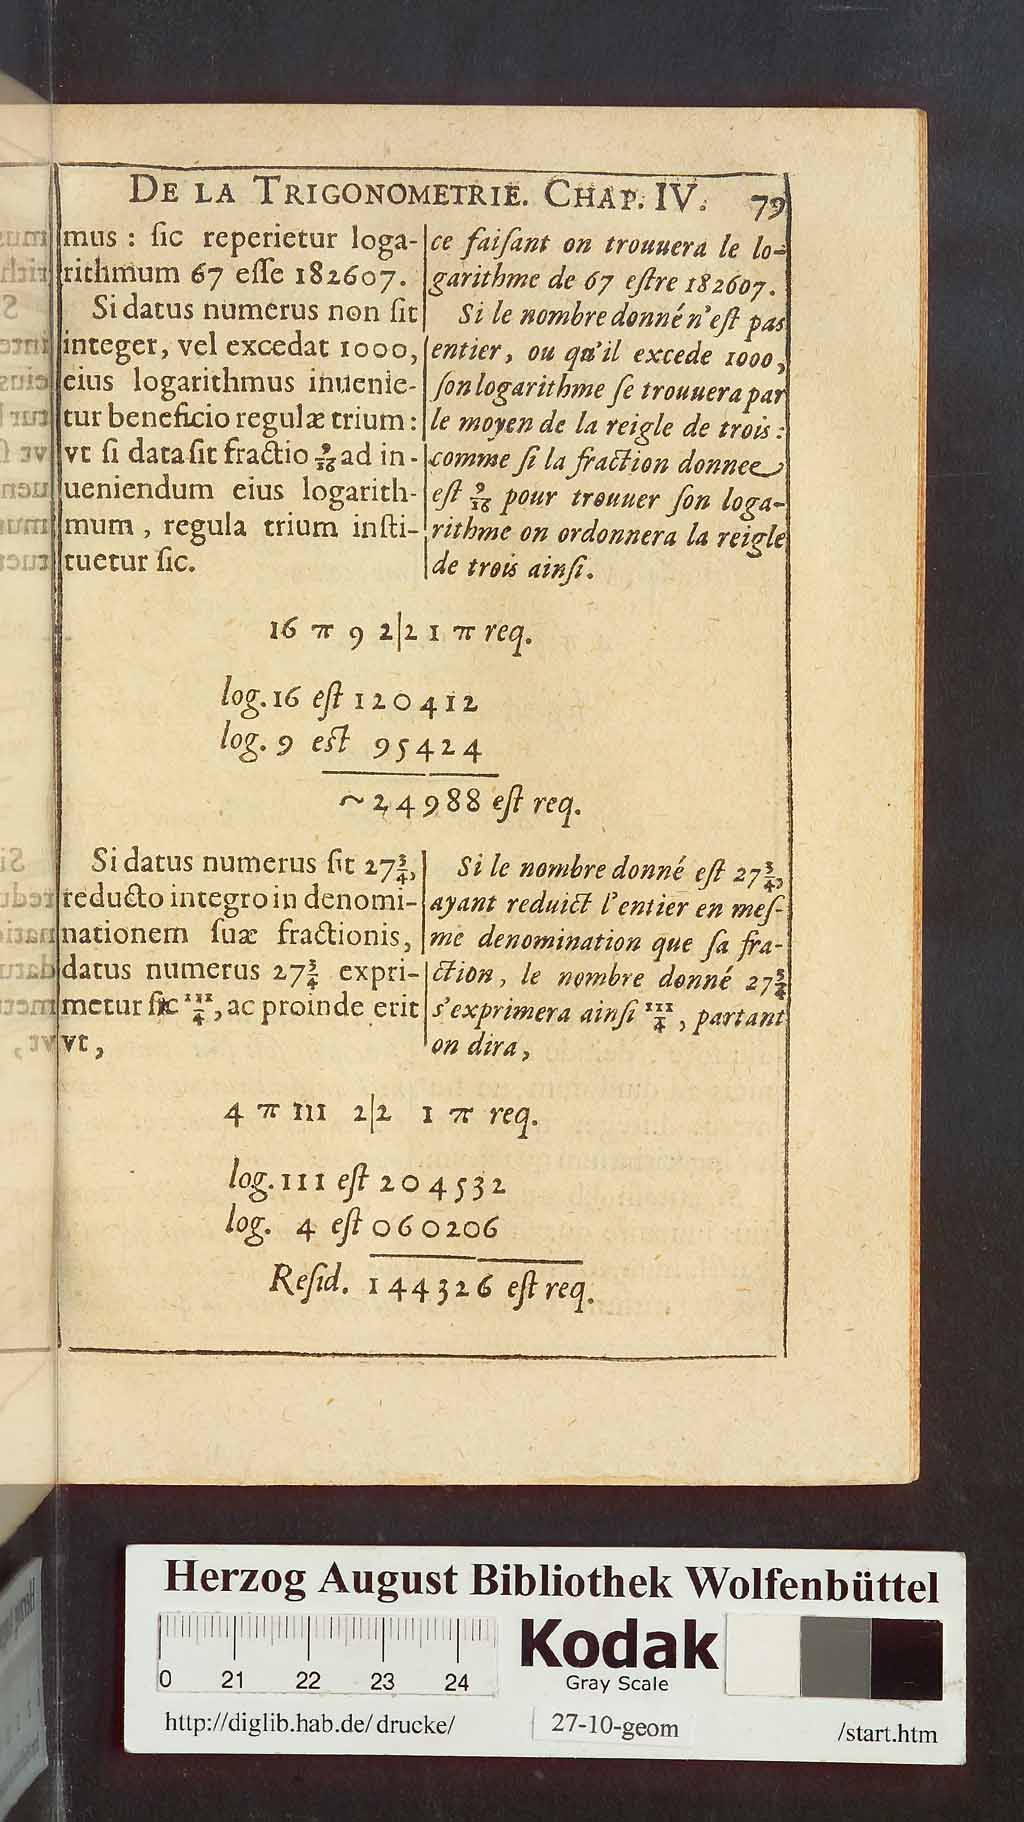 DE LA TRIGONOMETRIE. CHAP. IV. 79
mus : sic reperietur loga-
rithmum 67 esse 182607.
Si datus numerus non sit
integer, vel excedat 1000,
eius logarithmus inuenie-
tur beneficio regulæ trium :
vt si data sit fractio 9/16 ad in-
ueniendum eius logarith-
mum , regula trium insti-
tuetur sic.
ce faisant on trouuera le lo-
garithme de 67 estre 182607.
Si le nombre donné n'est pas
entier, ou qu'il excede 1000,
son logarithme se trouuera par
le moyen de la reigle de trois :
comme si la fraction donnee
est 9/16 pour trouuer son loga-
rithme on ordonnera la reigle
de trois ainsi.
16 π 9 2|2 1 π req.
log. 16 est 120412
log. 9 est 95424
~ 24988 est req.
Si datus numerus sit 27 3/4,
reducto integro in denomi-
nationem suæ fractionis,
datus numerus 27 3/4 expri-
metur sic 111/4, ac proinde erit
vt,
Si le nombre donné est 27 3/4,
ayant reduict l'entier en mes-
me denomination que sa fra-
ction, le nombre donné 27 3/4
s'exprimera ainsi 111/4, partant
on dira,
4 π 111 2|2 1 π req.
log. 111 est 204532
log. 4 est 060206
Resid. 144326 est req.
Herzog August Bibliothek Wolfenbüttel
0 21 22 23 24
Kodak
Gray Scale
http://diglib.hab.de/drucke/ 27-10-geom /start.htm